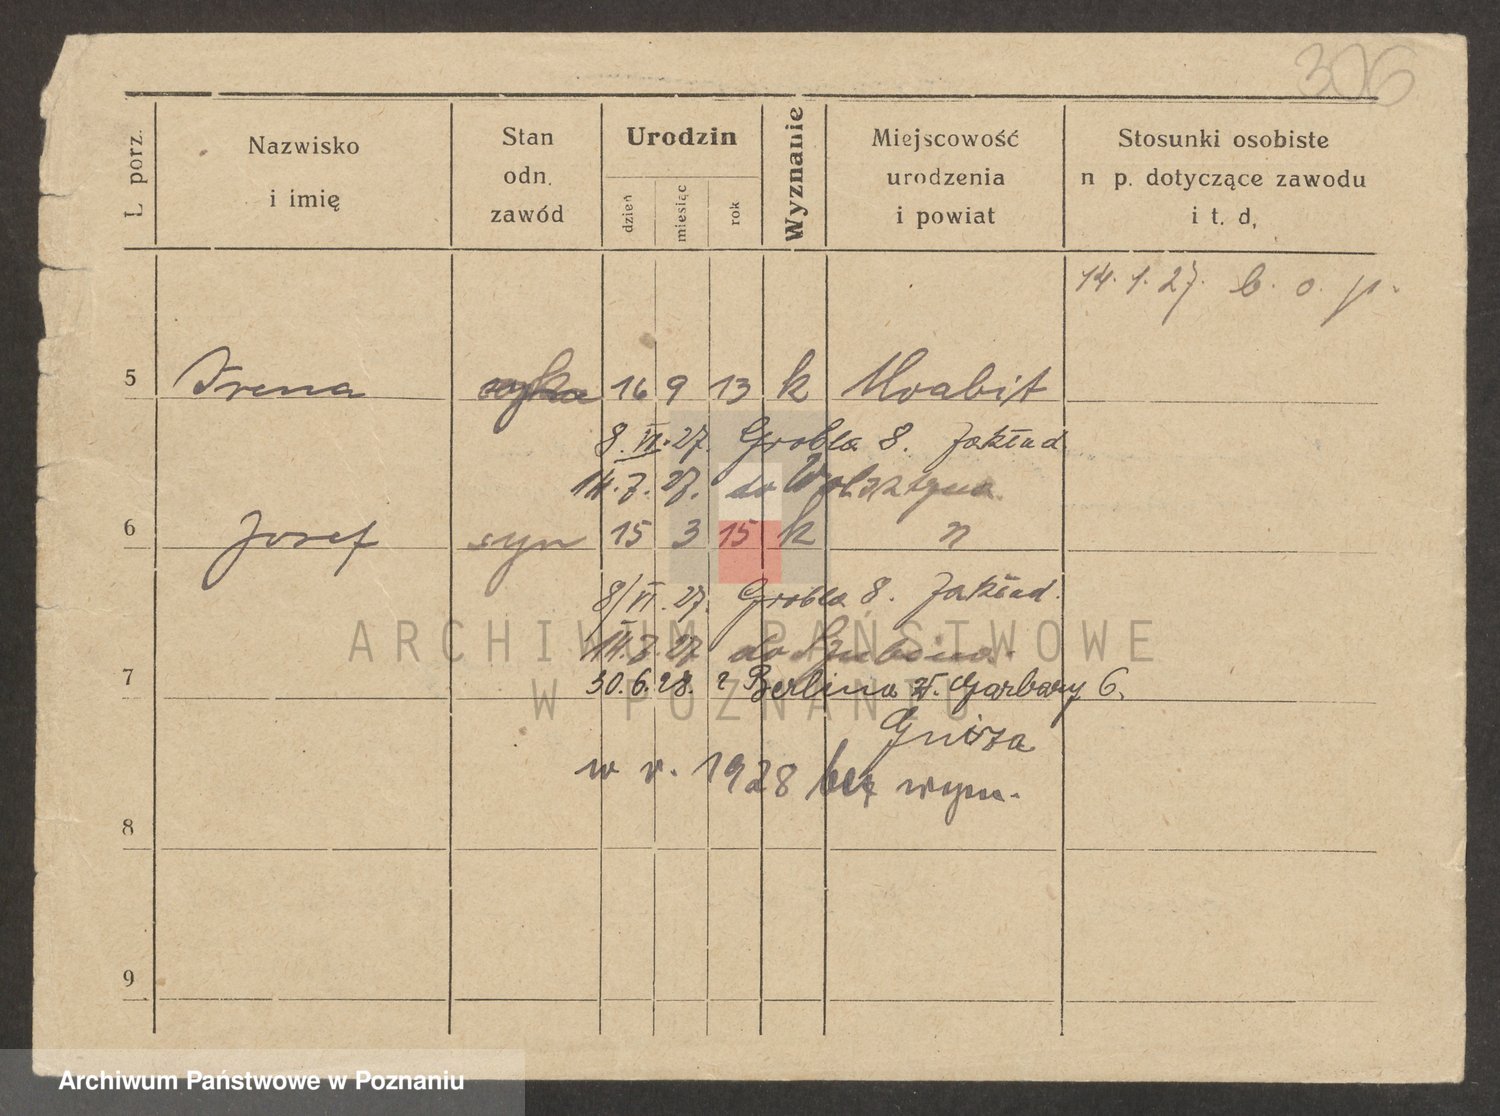 306
L. porz.
Nazwisko
i imię
Stan
odn.
zawód
Urodzin
dzień
miesiąc
rok
Wyznanie
Miejscowość
urodzenia
i powiat
Stosunki osobiste
n p. dotyczące zawodu
i t. d.
14.1.27. b. o. p.
5 Irena 16 9 13 k Moabit
8.VI.27. Grobla 8. Zakład
14.7.27. do Wolsztyna
6 Josef syn 15 3 15 k n
8/VI.27. Grobla 8. Zakład.
14.7.27 do Szubina.
7 30.6.28. z Berlina W. Garbary 6.
w r. 1928 bez wym.
8
9
ARCHIWUM PAŃSTWOWE
W POZNANIU
Archiwum Państwowe w Poznaniu